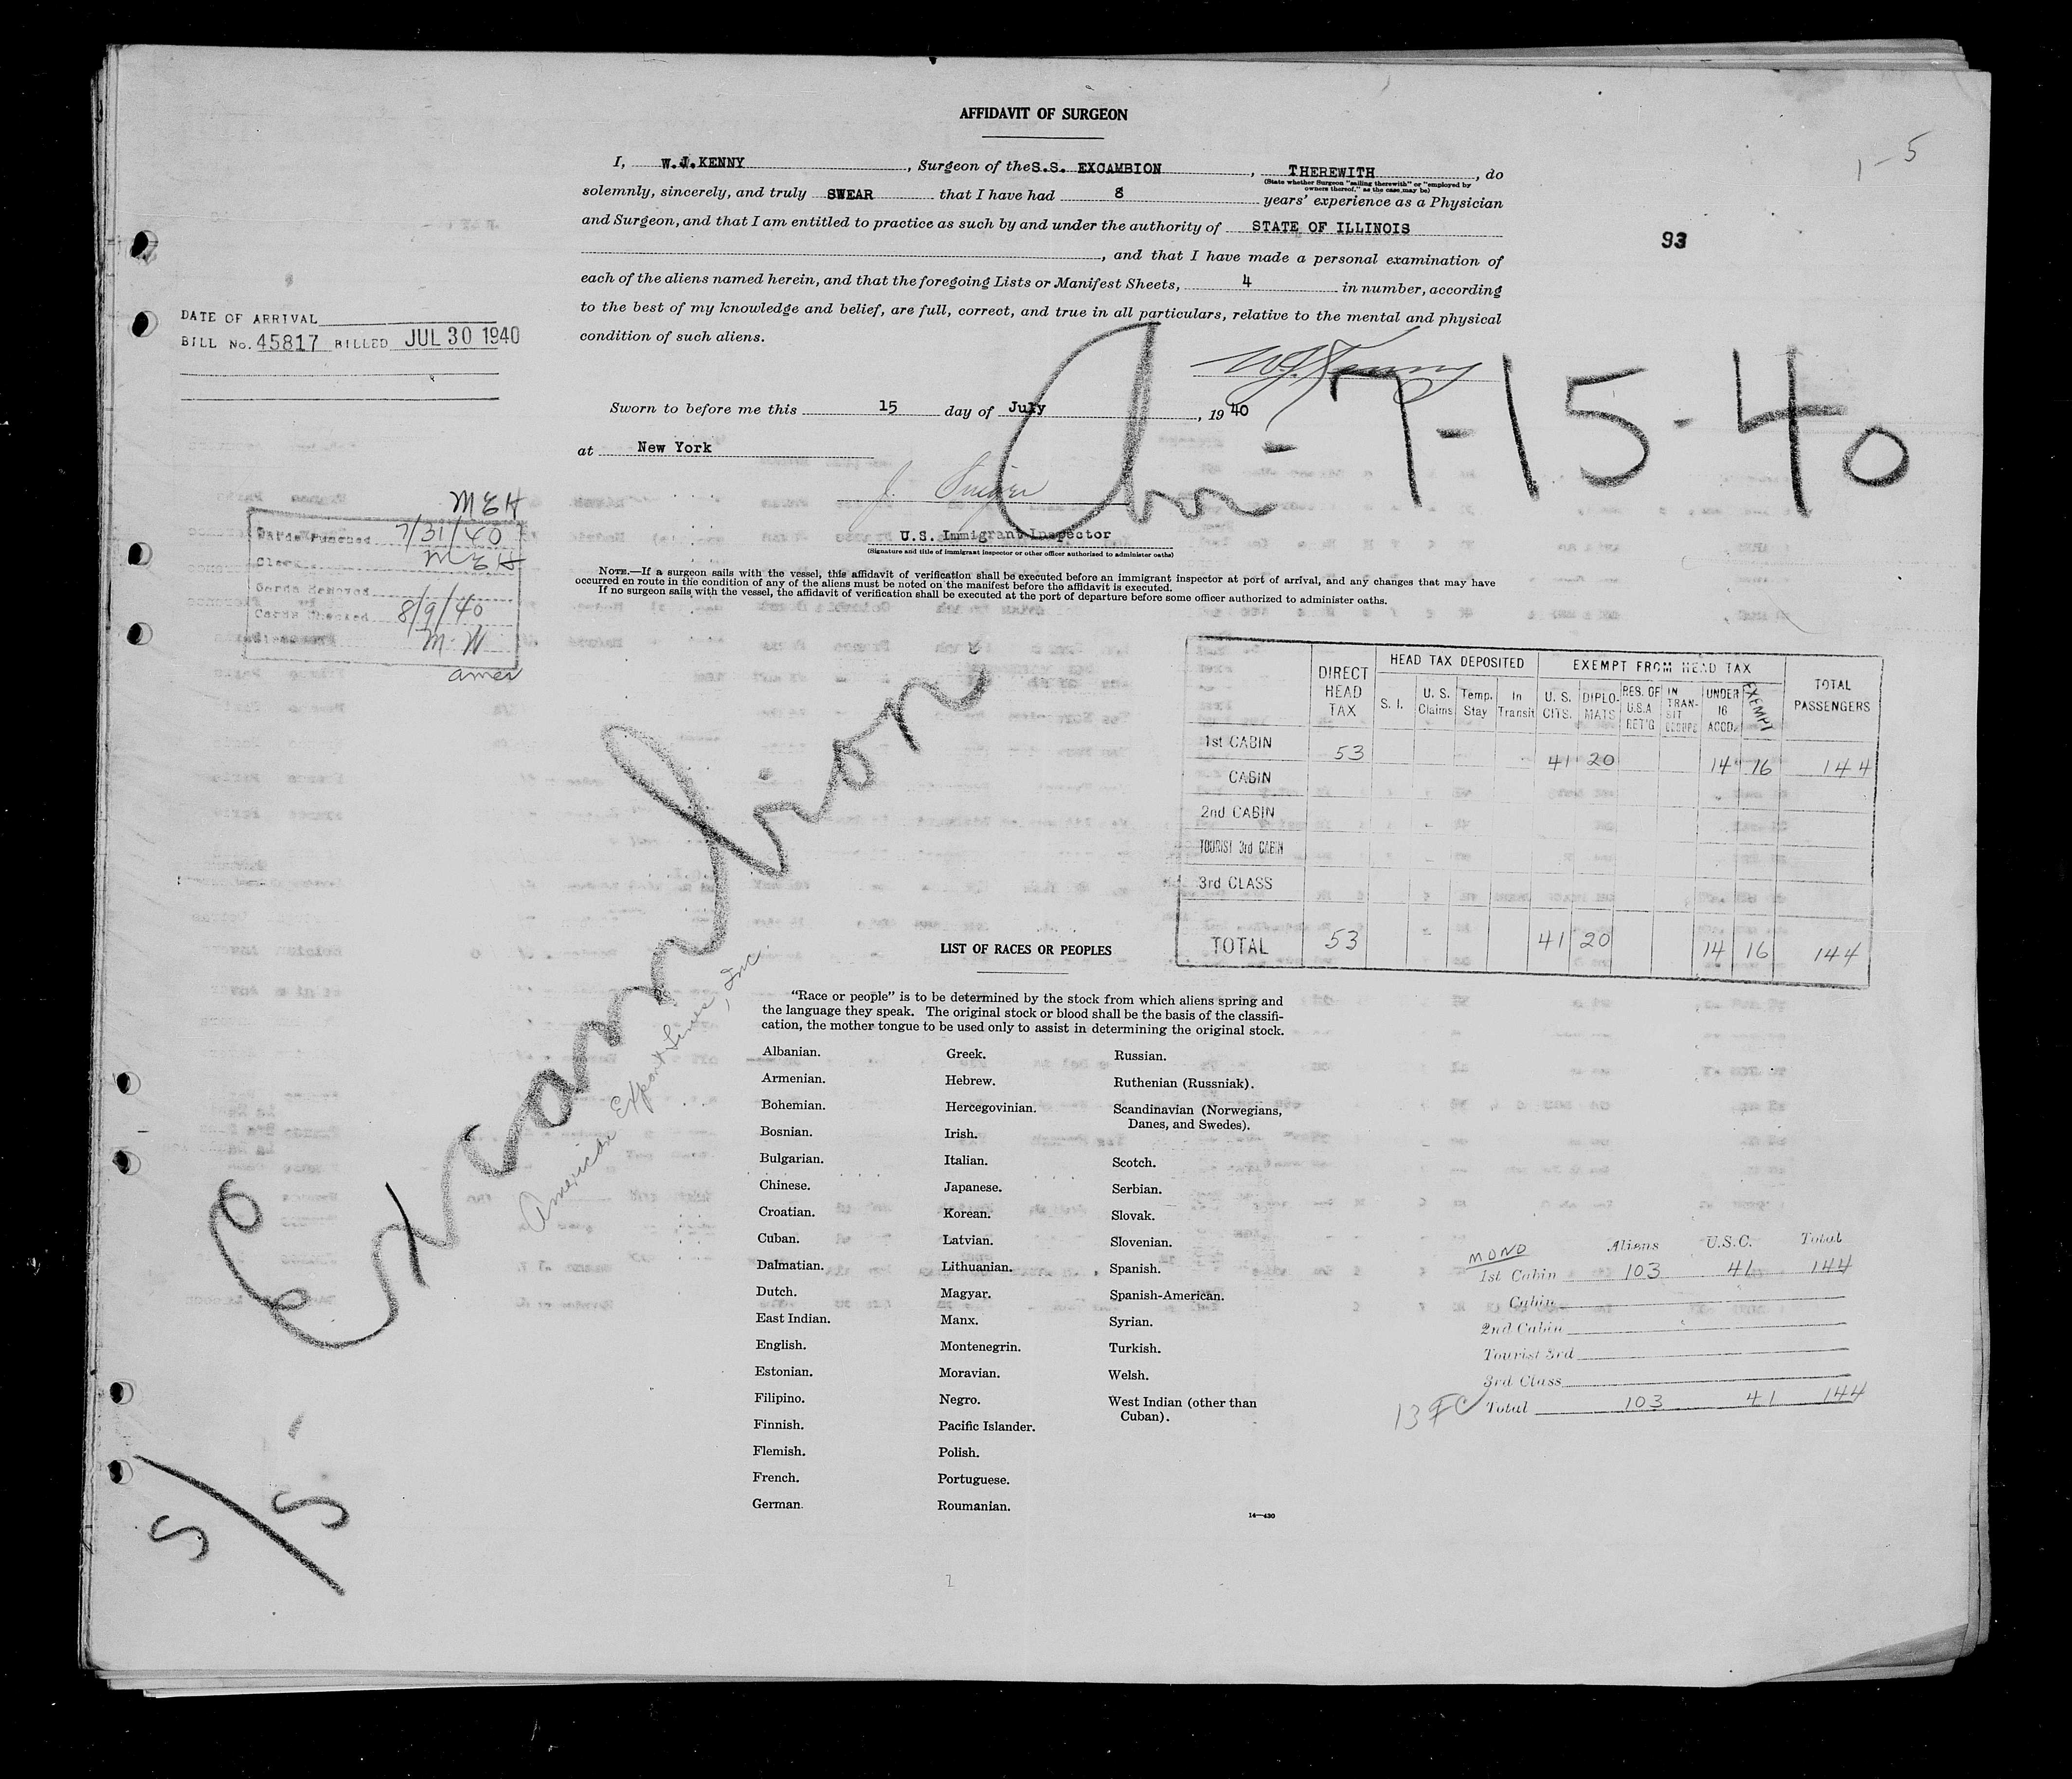 AFFIDAVIT OF SURGEON
1-5
I, W.J.KENNY, Surgeon of the S.S. EXCAMBION, THEREWITH, do
(State whether Surgeon "sailing therewith" or "employed by
owners thereof," as the case may be)
solemnly, sincerely, and truly SWEAR that I have had 8 years' experience as a Physician
and Surgeon, and that I am entitled to practice as such by and under the authority of STATE OF ILLINOIS
93
, and that I have made a personal examination of
each of the aliens named herein, and that the foregoing Lists or Manifest Sheets, 4 in number, according
to the best of my knowledge and belief, are full, correct, and true in all particulars, relative to the mental and physical
condition of such aliens.
DATE OF ARRIVAL
BILL No. 45817 BILLED JUL 30 1940
W.J. Kenny
Sworn to before me this 15 day of July, 1940
at New York
- 7-15-40
J.
U.S. Immigrant Inspector
(Signature and title of immigrant inspector or other officer authorized to administer oaths)
NOTE.—If a surgeon sails with the vessel, this affidavit of verification shall be executed before an immigrant inspector at port of arrival, and any changes that may have
occurred en route in the condition of any of the aliens must be noted on the manifest before the affidavit is executed.
If no surgeon sails with the vessel, the affidavit of verification shall be executed at the port of departure before some officer authorized to administer oaths.
MEH
Cards Punched 7/31/40
Clerk MEH
Cards Removed
Cards Checked 8/9/40
M.W
amer
S/S - Excambion
American Export Lines, Inc.
DIRECT HEAD TAX
HEAD TAX DEPOSITED
EXEMPT FROM HEAD TAX
TOTAL PASSENGERS
S. I.
U. S. Claims
Temp. Stay
In Transit
U. S. CITS.
DIPLO-MATS
RES. OF U.S.A RET'G
IN TRAN-SIT
UNDER 16 ACCD.
EXEMPT
1st CABIN 53 41 20 14 16 144
CABIN
2nd CABIN
TOURIST 3rd CABIN
3rd CLASS
TOTAL 53 41 20 14 16 144
LIST OF RACES OR PEOPLES
"Race or people" is to be determined by the stock from which aliens spring and
the language they speak. The original stock or blood shall be the basis of the classifi-
cation, the mother tongue to be used only to assist in determining the original stock.
Albanian.
Armenian.
Bohemian.
Bosnian.
Bulgarian.
Chinese.
Croatian.
Cuban.
Dalmatian.
Dutch.
East Indian.
English.
Estonian.
Filipino.
Finnish.
Flemish.
French.
German.
Greek.
Hebrew.
Hercegovinian.
Irish.
Italian.
Japanese.
Korean.
Latvian.
Lithuanian.
Magyar.
Manx.
Montenegrin.
Moravian.
Negro.
Pacific Islander.
Polish.
Portuguese.
Roumanian.
Russian.
Ruthenian (Russniak).
Scandinavian (Norwegians,
Danes, and Swedes).
Scotch.
Serbian.
Slovak.
Slovenian.
Spanish.
Spanish-American.
Syrian.
Turkish.
Welsh.
West Indian (other than
Cuban).
14—430
MONO Aliens U.S.C. Total
1st Cabin 103 41 144
Cabin
2nd Cabin
Tourist 3rd
3rd Class
Total 103 41 144